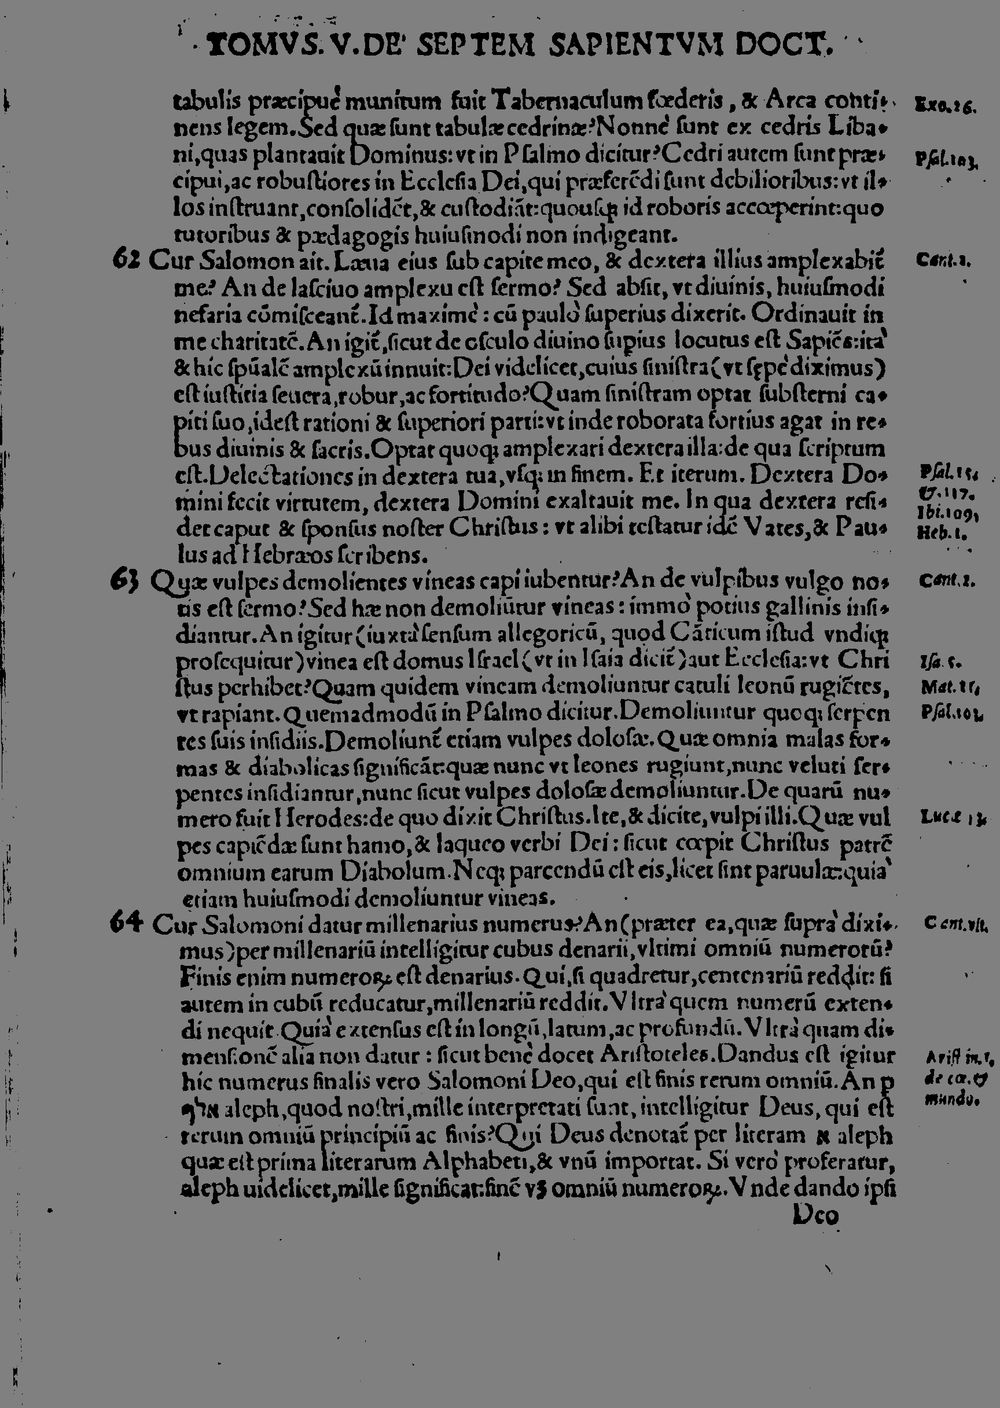 TOMVS. V. DE' SEPTEM SAPIENTVM DOCT.
tabulis præcipuè munitum fuit Tabernaculum fœderis, & Arca conti-
Exo. 26.
nens legem. Sed quæ sunt tabulæ cedrinæ? Nonnè sunt ex cedris Liba-
ni, quas plantauit Dominus: vt in Psalmo dicitur? Cedri autem sunt præ-
Psal. 103.
cipui, ac robustiores in Ecclesia Dei, qui præferẽdi sunt debilioribus: vt il-
los instruant, consolidẽt, & custodiãt: quousq; id roboris accœperint: quo
tutoribus & pædagogis huiusmodi non indigeant.
62 Cur Salomon ait. Læua eius sub capite meo, & dextera illius amplexabit̃
Cant. 2.
me? An de lasciuo amplexu est sermo? Sed absit, vt diuinis, huiusmodi
nefaria cõmisceant̃. Id maximè: cũ paulò superius dixerit. Ordinauit in
me charitatẽ. An igit̃, sicut de osculo diuino supius locutus est Sapiẽs: ità
& hic spũalẽ amplexũ innuit: Dei videlicet, cuius sinistra (vt sępè diximus)
est iustitia seuera, robur, ac fortitudo? Quam sinistram optat substerni ca-
piti suo, idest rationi & superiori parti: vt inde roborata fortius agat in re-
bus diuinis & sacris. Optat quoq; amplexari dextera illa: de qua scriptum
est. Delectationes in dextera tua, vsq; in finem. Et iterum. Dextera Do-
Psal. 15.
mini fecit virtutem, dextera Domini exaltauit me. In qua dextera resi-
& .117.
Ibi. 109.
det caput & sponsus noster Christus: vt alibi testatur idẽ Vates, & Pau-
Heb. 1.
lus ad Hebræos scribens.
63 Quæ vulpes demolientes vineas capi iubentur? An de vulpibus vulgo no-
Cant. 2.
tis est sermo? Sed hæ non demoliũtur vineas: immò potius gallinis insi-
diantur. An igitur (iuxtà sensum allegoricũ, quod Cãticum istud vndiq;
prosequitur) vinea est domus Israel (vt in Isaia dicit̃) aut Ecclesia: vt Chri
Isa. 5.
stus perhibet? Quam quidem vineam demoliuntur catuli leonũ rugiẽtes,
Mat. 21.
vt rapiant. Quemadmodũ in Psalmo dicitur. Demoliuntur quoq; serpen
Psal. 103.
tes suis insidiis. Demoliunt̃ etiam vulpes dolosæ. Quæ omnia malas for-
mas & diabolicas significãt: quæ nunc vt leones rugiunt, nunc veluti ser-
pentes insidiantur, nunc sicut vulpes dolosæ demoliuntur. De quarũ nu-
mero fuit Herodes: de quo dixit Christus. Ite, & dicite, vulpi illi. Quæ vul
Lucæ 13.
pes capiẽdæ sunt hamo, & laqueo verbi Dei: sicut cœpit Christus patrẽ
omnium earum Diabolum. Neq; parcendũ est eis, licet sint paruulæ: quià
etiam huiusmodi demoliuntur vineas.
64 Cur Salomoni datur millenarius numerus? An (præter ea, quæ suprà dixi-
Cant. vlt.
mus) per millenariũ intelligitur cubus denarii, vltimi omniũ numerorũ?
Finis enim numeroꝝ est denarius. Qui, si quadretur, centenariũ reddit: si
autem in cubũ reducatur, millenariũ reddit. Vltrà quem numerũ exten-
di nequit. Quià extensus est in longũ, latum, ac profundũ. Vltrà quam di-
mensionẽ alia non datur: sicut benè docet Aristoteles. Dandus est igitur
Arist in. 1.
hic numerus finalis vero Salomoni Deo, qui est finis rerum omniũ. An p
de cœ. &
אלף aleph, quod nostri, mille interpretati sunt, intelligitur Deus, qui est
mundo.
rerum omniũ principiũ ac finis? Qui Deus denotat̃ per literam א aleph
quæ est prima literarum Alphabeti, & vnũ importat. Si verò proferatur,
aleph uidelicet, mille significat: sinẽ vꝫ omniũ numeroꝝ. Vnde dando ipsi
Deo